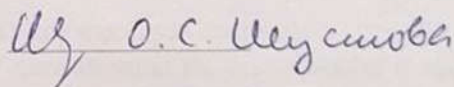 О.С. Шустова